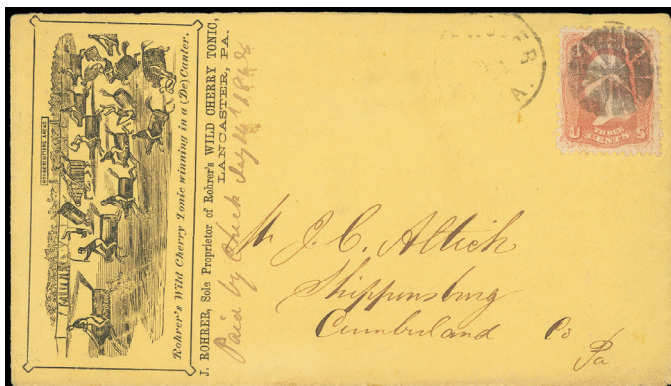 Rohrer's Wild Cherry Tonic winning in a (De)Canter.
J. ROHRER, Sole Proprietor of Rohrer's WILD CHERRY TONIC,
LANCASTER, PA.
Paid by check
1868
STER
A.
U S
THREE
CENTS
J. C. Altick
Shippensburg
Cumberland Co
Pa